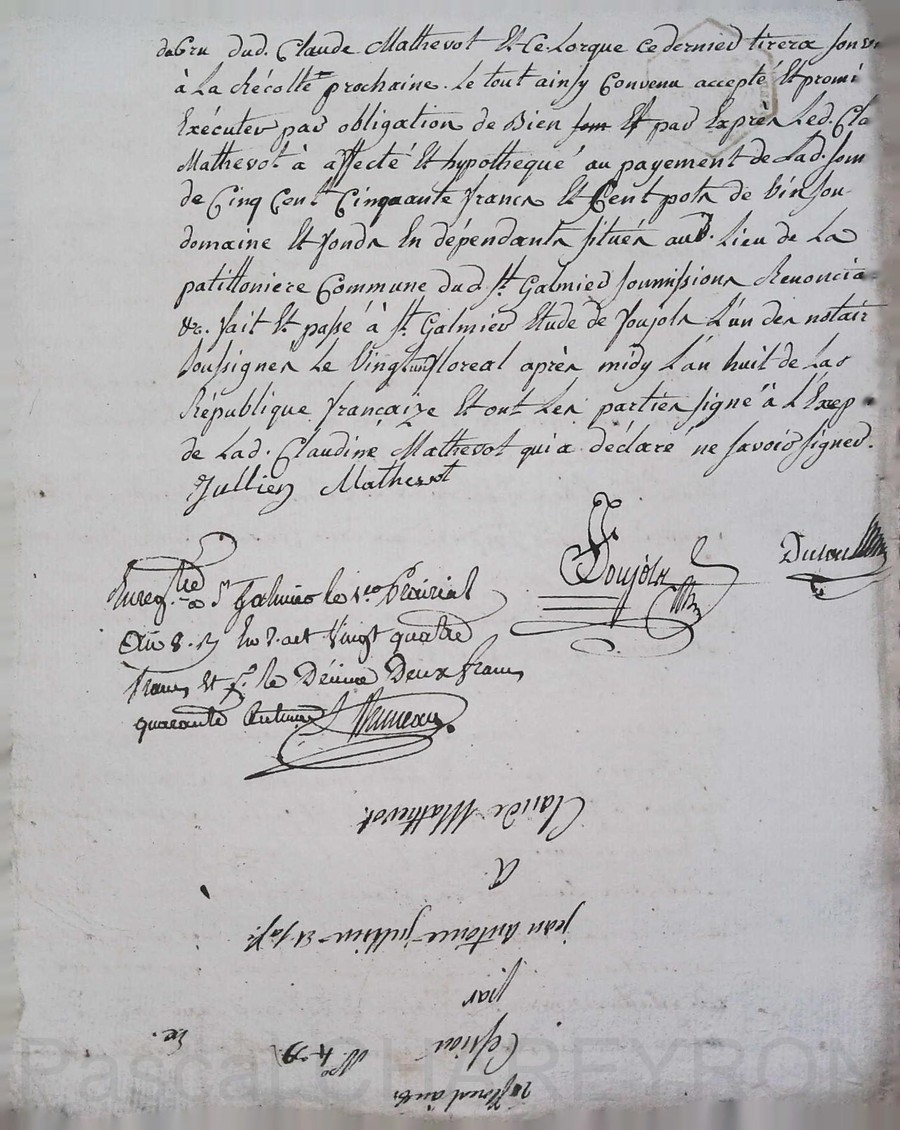 du Cru dud. Claude Mathevot Et Ce Lorque ce dernier tirera son
à La Récolte prochaine. Le tout ainsy Convenu accepté Et promi
Exécuter par obligation de Bien Et par Exprès Led. Cla
Mathevot à affecté Et hypothequé au payement de Lad. som
de Cinq Cent Cinquante francs Et Cent pots de vin son
domaine Et fonds En dépendants situés aud. Lieu de La
patilloniere Commune dud. St. Galmier soumissions Renoncia
&c. fait Et passé à St. Galmier Etude de Poujols L'un des notair
soussignés Le vingt floreal après midy L'an huit de La
République françaize Et ont Les parties signé à L'Excep
de Lad. Claudine Mathevot qui a déclaré ne savoir signer.
Jullien Mathevot
Poujols
Enregtré a St Galmier le 1er Prairial
An 8. Vingt quatre
francs Et pr. le Décime Deux francs
quarante Centimes
Claude Mathevot
A
jean Antoine jullien Et sa fe.
par
Cession
No. 439
20 floreal an 8.
Pascal CHAREYRON